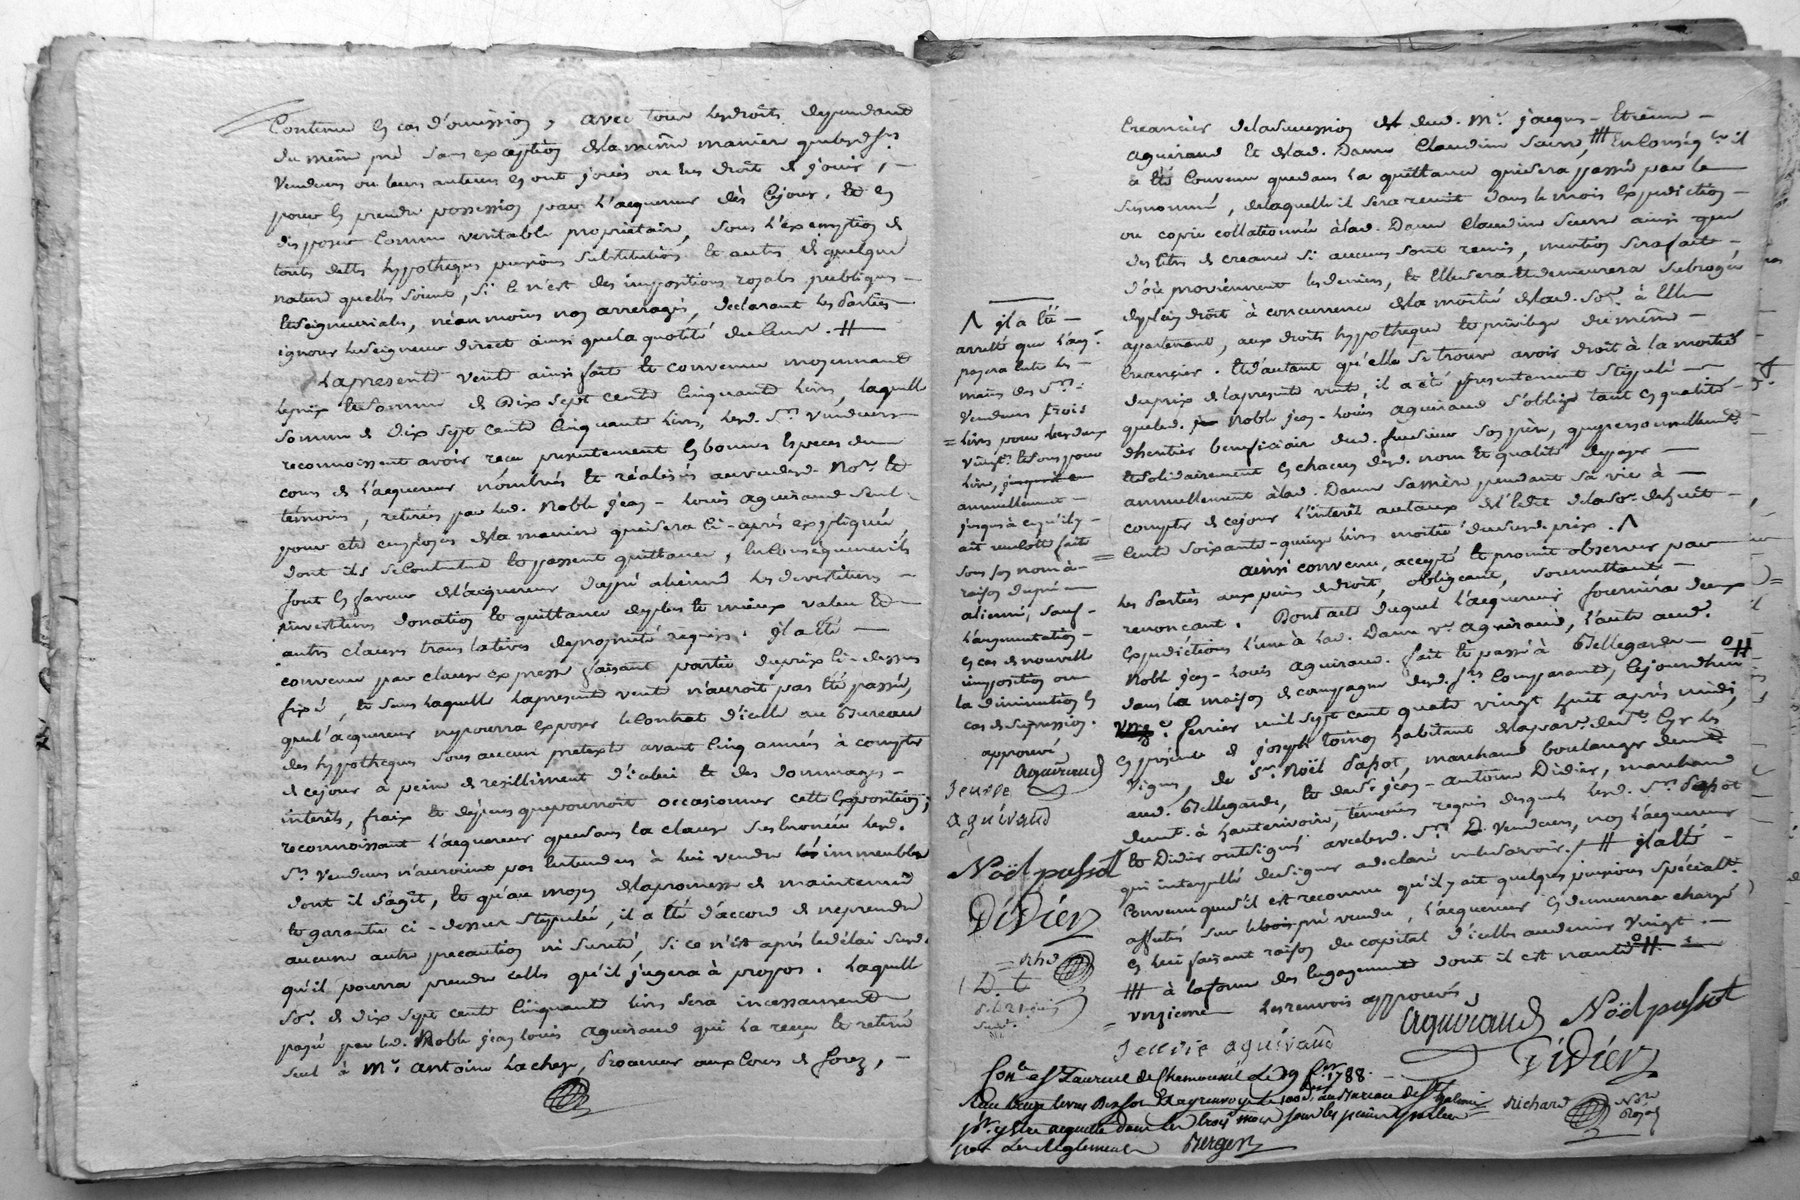 Contenue en cas d'omission, avec tous les droits dependant
du meme pré sans exception de la même maniere que lesd. srs
vendeurs ou leurs auteurs en ont jouis ou eus droit de jouir, —
pour en prendre possession par l'acquereur dès cejour, et en
disposer comme veritable propriétaire, sous l'exemption de
toute dette hypotheque pensions substitution et autre de quelque
nature quelles soient, si ce n'est des impositions royales publiques —
et seigneuriales, néanmoins non arreragés, declarant les parties
ignorer le seigneur direct ainsi que la quotité du cens. #
La presente vente ainsi faite et convenue moyennant
le prix et somme de dix sept cents cinquante livres, laquelle
somme de dix sept cents cinquante livres, lesd. srs vendeurs
reconnoissent avoir reçu presentement en bonnes especes du
cours de l'acquereur nombrés et réalisés au vu desd. Nore et
témoins, retirés par led. Noble jean-louis aguiraud seul
pour etre employés de la maniere que sera ci-après expliquée,
dont ils se contentent et passent quittance, en consequence ils
font en faveur de l'acquereur du pré aliené les devestitures —
investitures donation et quittance de plus et mieux value et
autres clauses translatives de propriété requises. il a été —
convenu par clause expresse faisant partie du prix ci-dessus
fixé, et sans laquelle la presente vente n'auroit pas été passée,
que l'acquereur ne pourra exposer le contrat d'icelle au Bureau
des hypotheques sous aucun pretexte avant cinq années à compter
de cejour à peine de resiliment d'icelui et des dommages —
intérêts, fraix et dépens que pourroit occasionner cette exposition;
reconnoissant l'acquereur que sans la clause susénoncée lesd.
srs vendeurs n'auroient pas entendu à lui vendre les immeubles
dont il s'agit, et qu'au moyen de la promesse de maintenue
et garantie ci-dessus stipulée, il a été d'accord de ne prendre
aucune autre precaution ni sureté, si ce n'est après le délai susd.
qu'il pourra prendre celles qu'il jugera à propos. Laquelle
se. de dix sept cents cinquante livres sera incessament
payé par led. Noble jean louis aguiraud qui la reçue et retiré
seul à Mr antoine Lachez, Procureur aux cours de forez, —
creancier de la succession dud. Mr. jacques-Etienne —
aguiraud et de lad. Dame Claudine Seurre, # En conséqce il
a été convenu que dans la quittance qui sera passé par le
susnommé, de laquelle il sera remit dans le mois expedition —
ou copie collationnée à lad. Dame Claudine Seurre ainsi que
des titres de creance si aucuns sont remis, mention sera faite —
d'où proviennent les deniers, et elle sera et demeurera subrogée
de plein droit à concurrence de la moitié de lad. se. à elle
apartenant, aux droits hypotheque et privilege du même —
creancier. Et d'autant qu'elle se trouve avoir droit à la moitié
du prix de la presente vente, il a été presentement stipulé —
que led. Noble jean-louis aguiraud s'oblige tant en qualité
d'heritier beneficiaire dud. feu sieur son père, que personnellement
et solidairement en chacun desd. nom et qualité de payer —
annuellement à lad. Dame sa mère pendant sa vie à —
compter de cejour l'interêt au taux de l'edit de la se. de huit —
cents soixante-quinze livres moitié du susd. prix. Λ
ainsi convenu, accepté et promit observer par
les parties aux peines de droit, obligeant, soumettant —
renonçant. Dont acte duquel l'acquereur fournira deux
expeditions l'une à lad. Dame ve aguiraud, l'autre aud.
Noble jean-louis aguiraud. fait et passé à Bellegarde —
dans la maison de campagne desd. srs comparants, cejourd'hui #
fevrier mil sept cent quatre vingt huit après midi,
en présence de joseph toinon habitant de la parse de St. Cyr les
vignes, de Sr Noël Passot, marchand boulanger demt
aud. Bellegarde, et de Sr jean-antoine Didier, marchand
demt. à hauterivoire, témoins requis desquels lesd. Srs Passot
et Didier ont signé avec lesd. Srs D. vendeurs, non l'acquereur
qui interpellé de signer a declaré ne le savoir. / # il a été —
convenu que s'il est reconnu qu'il y ait quelques pensions spécialt.
affectés sur le bois pré vendu, l'acquereur en demeurera chargé
en lui faisant raison du capital d'icelles au denier vingt. —
# à la forme des engagements dont il est nanti #
= vnzieme Les renvois approuvés,
Λ il a été —
arrêté que l'acqr.
payera entre les —
mains des srs.
vendeurs trois
= livres pour lesdeux
vingt. et sous pour
livre,
annuellement —
jusqu'à ce qu'il y —
ait eu cotte faite
sous son nom à —
raison du pré —
aliené, sauf —
l'augmentation —
en cas de nouvelle
imposition ou
la diminution en
cas de supression.
approuvé
aguiraud
Seurre
aguiraud
Noël passot
Didier
aguiraud Noël passot
Seurre aguiraud
Didier
Richard Nore Royal
Conlé à St Laurent de Chamousset Le 19 fer. 1788.
Bergeron